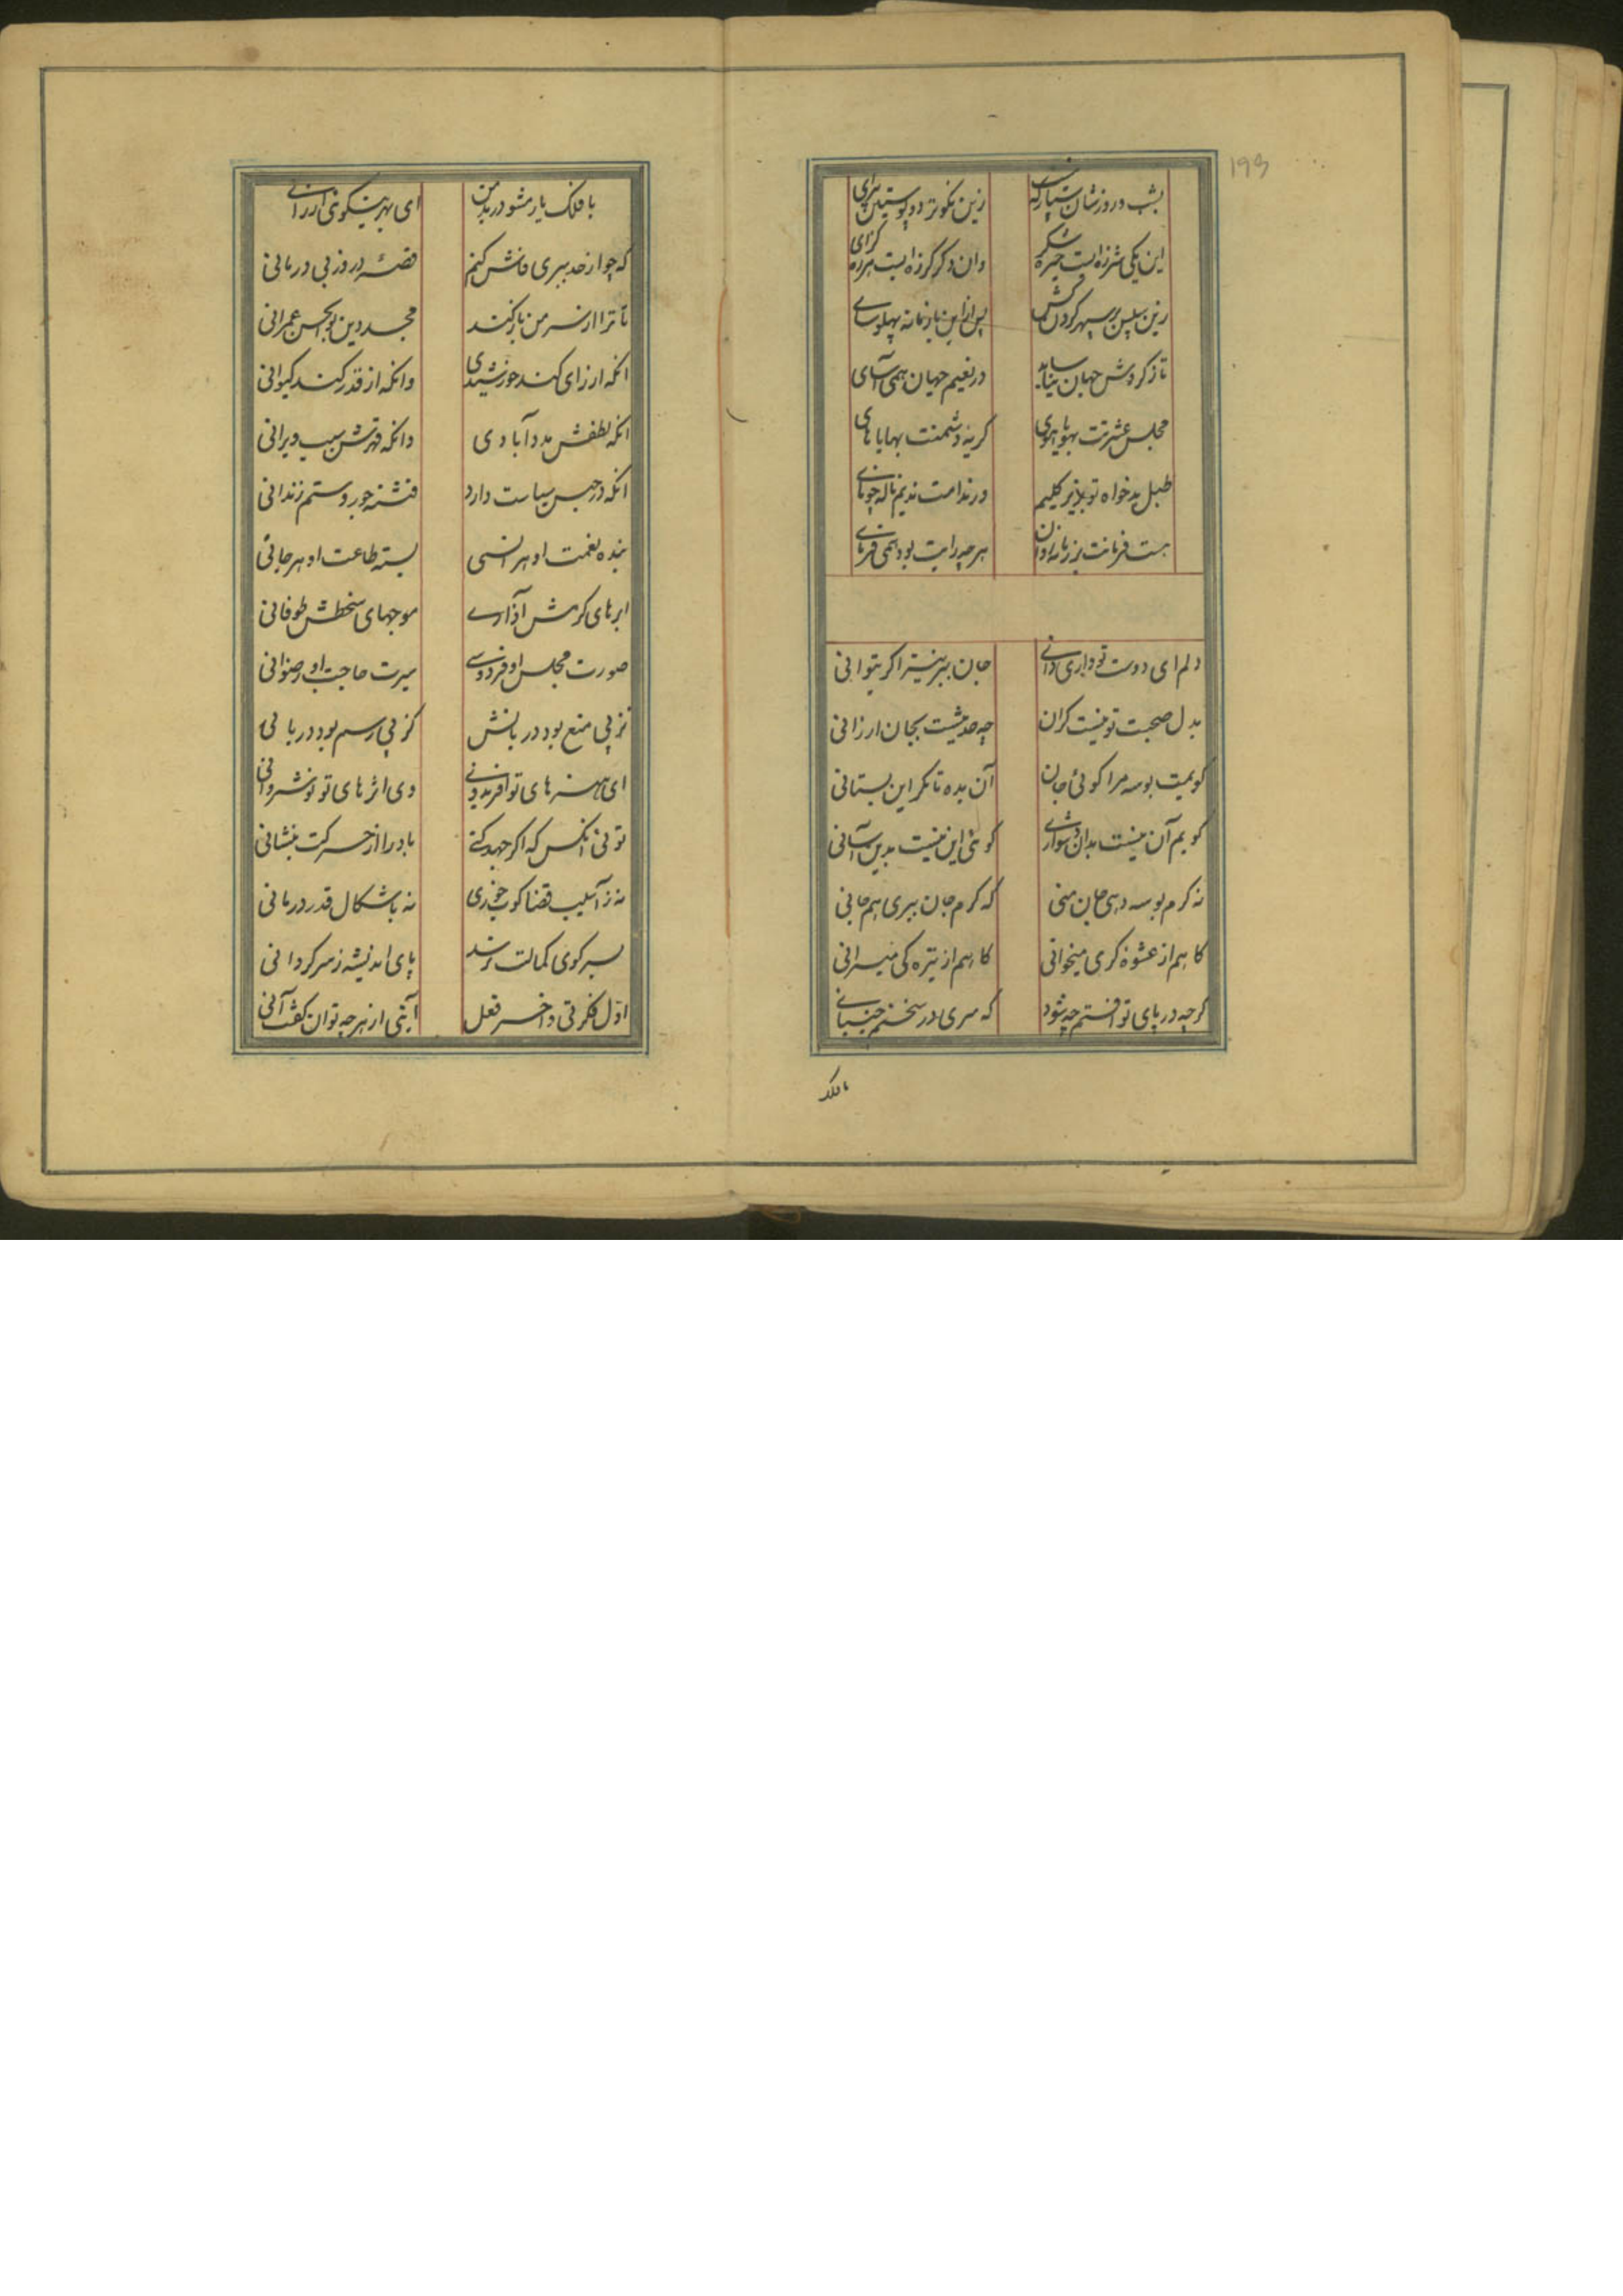 ۱۹۳
بشب و روزشان سپار که نیست زین نکوتر دو پوستین پیرای
این یکی شرزه‌ایست خیره شکر وان دکر کرزه‌ایست هرزه کزای
زین سپس بر سپهر کردن کش پس ازین با زمانه پهلو سای
تا ز کردش جهان نیاساید در نعیم جهان همی‌آسای
مجلس عشرتت بهویاهوی کریه دشمنت بهایاهای
طبل بدخواه تو بزیر کلیم در ندامت ندیم ناله چو نای
هست فرمانت بر زمانه روان هرچه رایت بود همی فرمای
دلم ای دوست تو داری دانی جان ببر نیز اکر بتوانی
بدل صحبت تو نیست کران چه حدیثیست بجان ارزانی
کویمت بوسه مرا کوئی جان آن بده تا مکر این بستانی
کویم آن نیست بدان دشواری کوئی این نیست بدین آسانی
نه کرم بوسه دهی جان منی که کرم جان ببری هم جانی
کاهم از عشوه کری میخوانی کاهم از تیره کی میرانی
کرچه در پای تو افتم چه شود که سری در سخنم جنبانی
با فلک یار مشو در بد من ای بهر نیکوئی ارزانی
که چو از حد ببری فاش کنم قصهٔ درد ز بی درمانی
تا ترا از سر من باز کند مجد دین بوالحسن عمرانی
انکه از رای کند خورشیدی وانکه از قدر کند کیوانی
انکه لطفش مدد آبادی وانکه قهرش سبب ویرانی
انکه در حبس سیاست دارد فتنه جور و ستم زندانی
بنده نعمت او هر انسی بسته طاعت او هر جانی
ابرهای کرمش آذاری موجهای سخطش طوفانی
صورت مجلس او فردوسی سیرت حاجب او رضوانی
نز پی منع بود دربانش کز پی رسم بود دربانی
ای هنرهای تو افریدونی وی اثرهای تو نوشروانی
توئی انکس که اکر جهد کنی باد را از حرکت بنشانی
نه ز آسیب قضا کوب خوری نه باشکال قدر درمانی
بسر کوی کمالت نرسد پای اندیشه ز سرکردانی
اول فکرتی و اخر فعل آیتی از هرچه توان کفت آنی